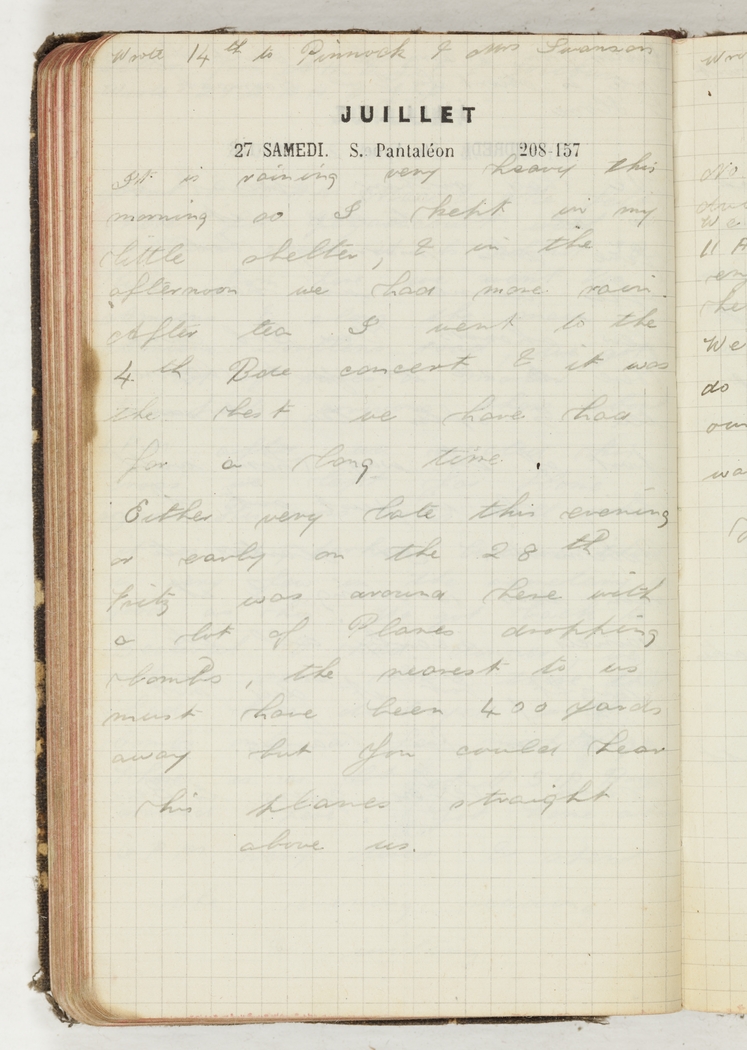 Wrote 14th to Pinnock & Mrs Swanson
JUILLET
27 SAMEDI. S. Pantaléon 208-157
It is raining very heavy this
morning so I kept in my
little shelter, & in the
afternoon we had more rain.
After tea I went to the
4th Bde concert & it was
the best we have had
for a long time.
Either very late this evening
or early on the 28th
Fritz was around here with
a lot of Planes dropping
bombs, the nearest to us
must have been 400 yards
away but you could hear
his planes straight
above us.